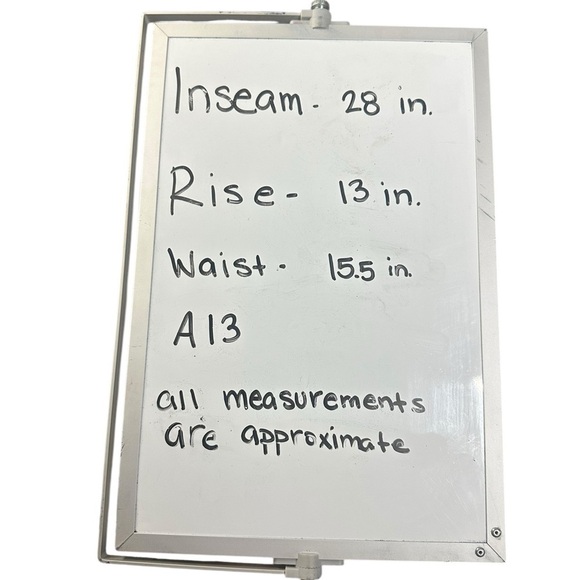 Inseam - 28 in.
Rise - 13 in.
Waist - 15.5 in.
A13
all measurements
are approximate